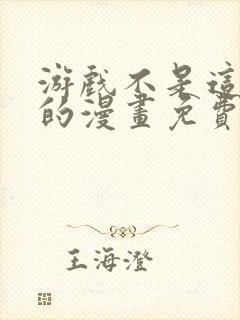 游戲不是這
的漫畫免費
王海澄